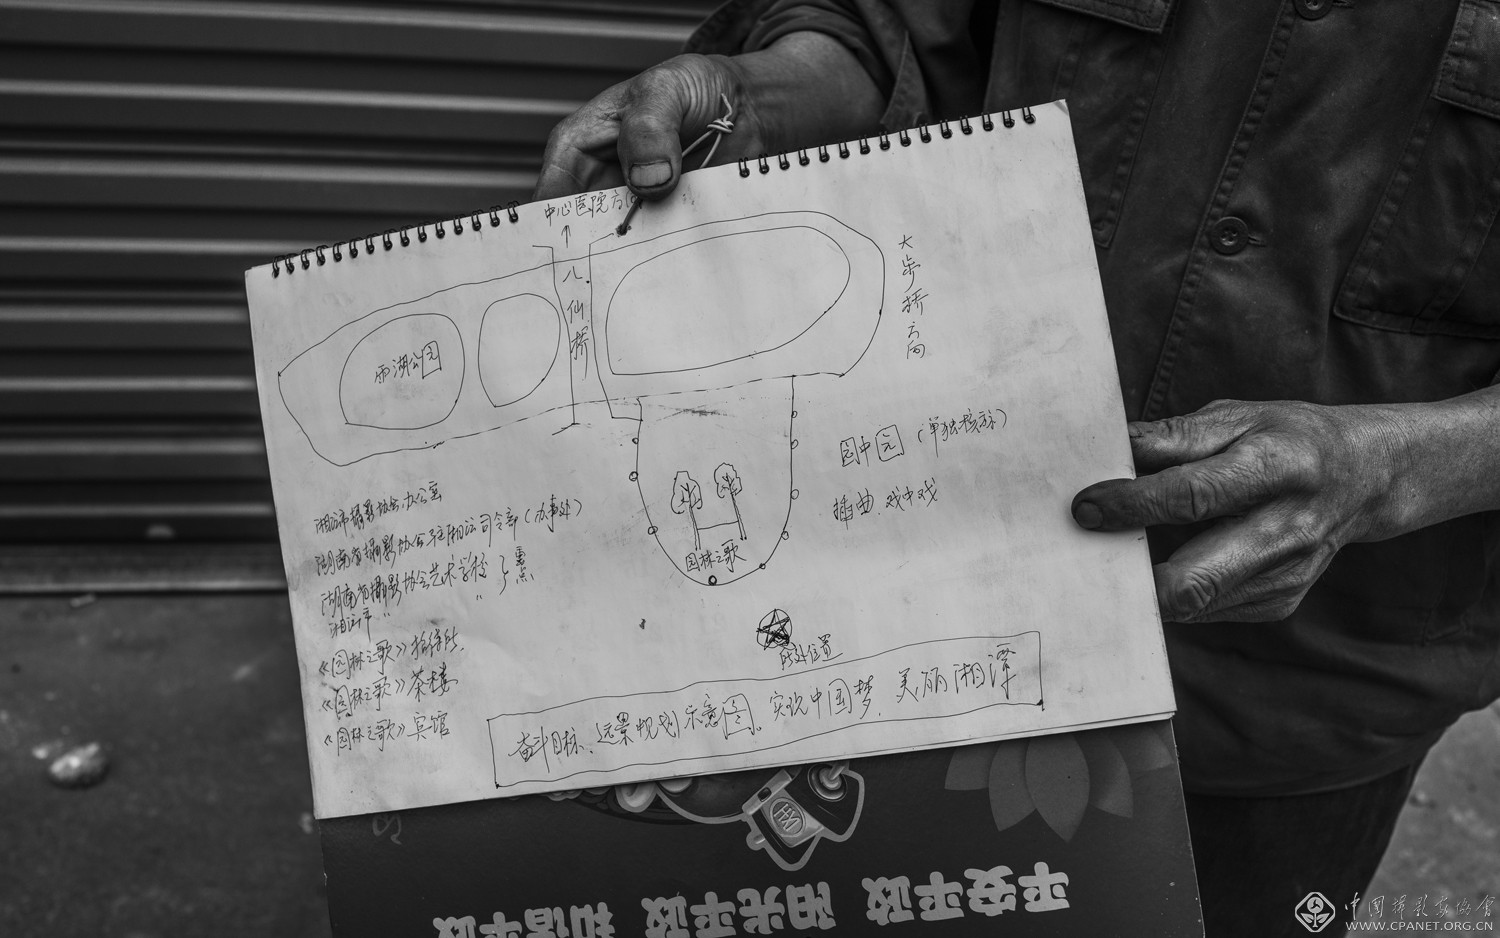 中心医院方向
八仙桥
大步桥方向
雨湖公园
园中园（单独核标）
插曲.戏中戏
园林之歌
湘潭市摄影协会办公室
湖南省摄影协会驻湘潭司令部（办事处）
湖南省摄影协会艺术学校
湘潭市 〃 〃
重点
《园林之歌》招待所.
《园林之歌》茶楼
《园林之歌》宾馆
所处位置
奋斗目标、远景规划示意图。实现中国梦.美丽湘潭
平安平政 阳光平政 和谐平政
中国摄影家协会
WWW.CPANET.ORG.CN